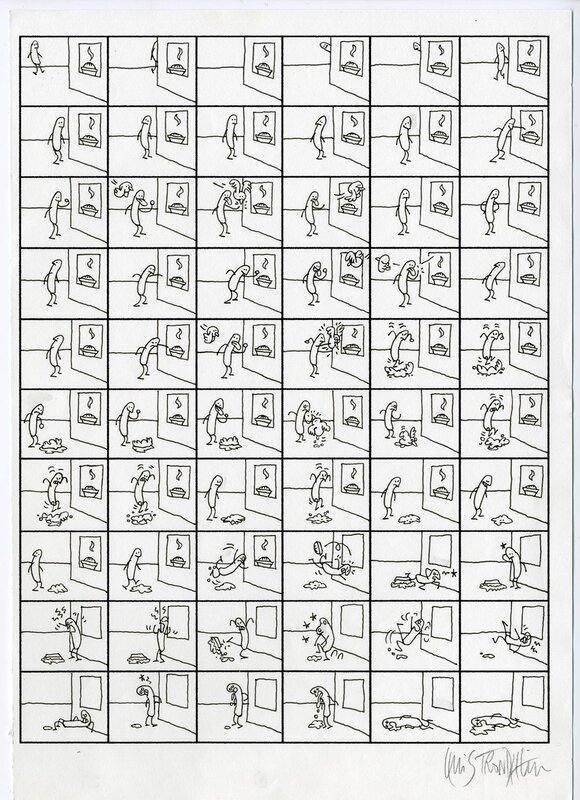 LEWIS TRONDHEIM